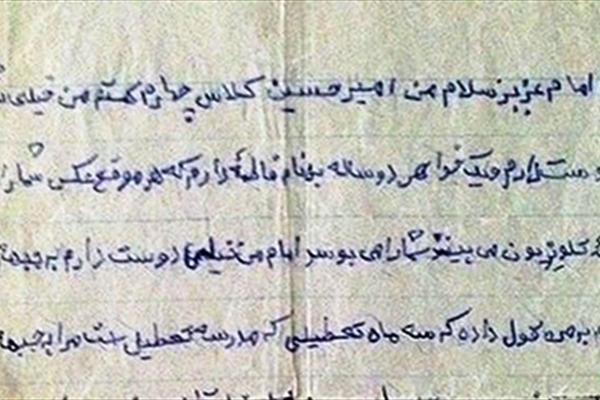 امام عزیز سلام من امیرحسین کلاس چهارم هستم من خیلی
دوست دارم و یک خواهر دو ساله بهنام فاطمه دارم که هر موقع عکس شما را
تلوزیون می بیند شما را می بوسد امام من خیلی دوست دارم به جبهه
به من قول داده که سه ماه تعطیلی که مدرسه تعطیل است مرا به جبهه